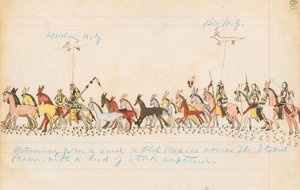 Howling Wolf
Big Wolf.
Returning from a raid to Old Mexico across the Staked
Plain. With a herd of stock captured.